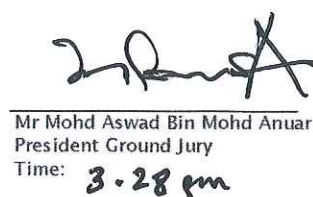 Mr Mohd Aswad Bin Mohd Anuar
President Ground Jury
Time: 3.28 pm